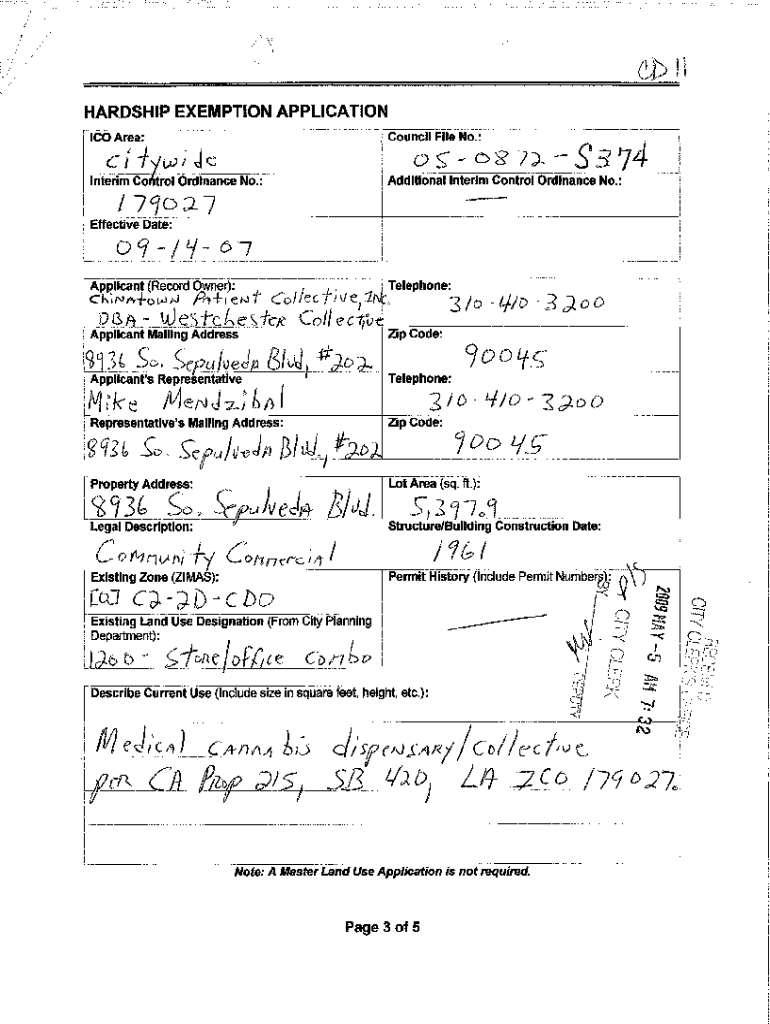 CD 11
HARDSHIP EXEMPTION APPLICATION
ICO Area:
Citywide
Council File No.:
05-0872-S374
Interim Control Ordinance No.:
179027
Additional Interim Control Ordinance No.:
—
Effective Date:
09-14-07
Applicant (Record Owner):
Chinatown Patient Collective, Inc.
DBA - Westchester Collective
Telephone:
310-410-3200
Applicant Mailing Address
8936 So. Sepulveda Blvd, #202
Zip Code:
90045
Applicant's Representative
Mike Mendzibal
Telephone:
310-410-3200
Representative's Mailing Address:
8936 So. Sepulveda Blvd, #202
Zip Code:
90045
Property Address:
8936 So. Sepulveda Blvd.
Lot Area (sq. ft.):
5,397.9
Legal Description:
Community Commercial
Structure/Building Construction Date:
1961
Existing Zone (ZIMAS):
[Q] C2-2D-CDO
Permit History (Include Permit Numbers):
—
Existing Land Use Designation (From City Planning
Department):
1200 - Store/office Combo
BY
CITY CLERK
DEPUTY
2009 MAY -5 AM 7:32
RECEIVED
CITY CLERK'S OFFICE
Describe Current Use (Include size in square feet, height, etc.):
Medical Cannabis dispensary/collective
per CA Prop 215, SB 420, LA ICO 179027.
Note: A Master Land Use Application is not required.
Page 3 of 5